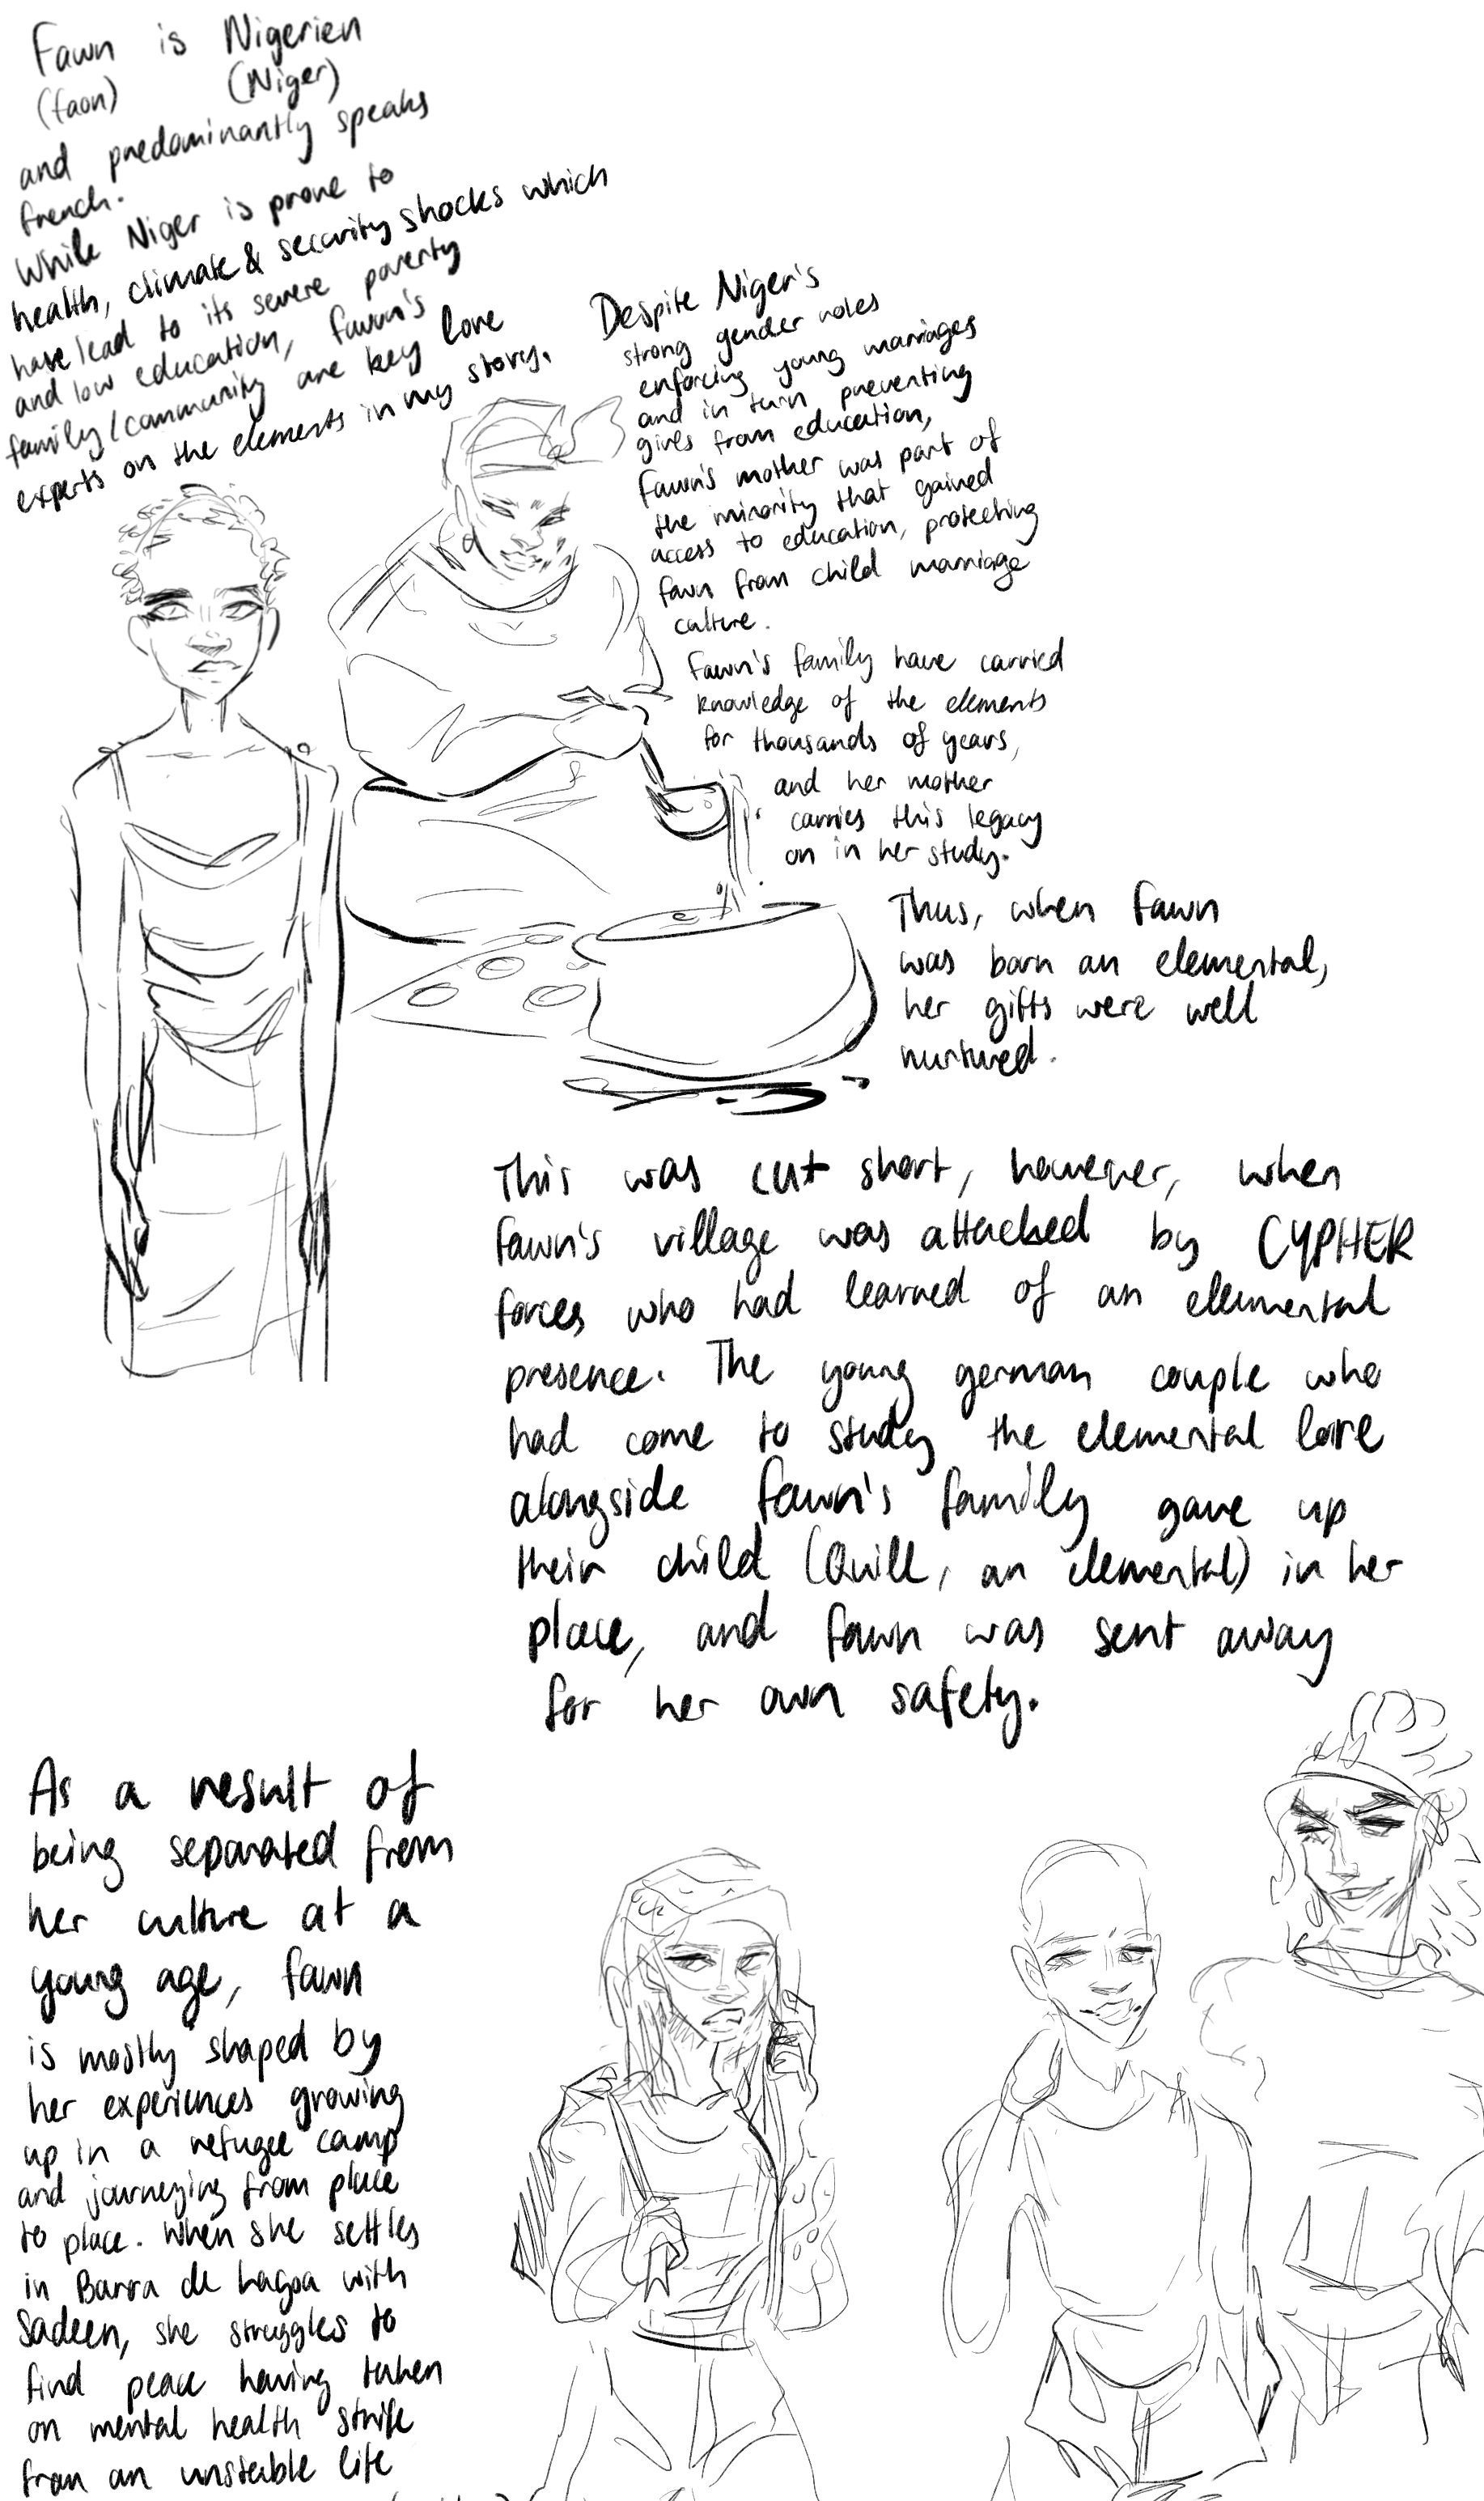 Fawn is Nigerien
(faon) (Niger)
and predominantly speaks
french.
While Niger is prone to
health, climate & security shocks which
have lead to its severe poverty
and low education, fawn's
family/community are key lore
experts on the elements in my story.
Despite Niger's
strong gender roles
enforcing young marriages
and in turn preventing
girls from education,
fawn's mother was part of
the minority that gained
access to education, protecting
fawn from child marriage
culture.
fawn's family have carried
knowledge of the elements
for thousands of years,
and her mother
carries this legacy
on in her study.
Thus, when fawn
was born an elemental,
her gifts were well
nurtured.
This was cut short, however, when
fawn's village was attacked by CYPHER
forces who had learned of an elemental
presence. The young german couple who
had come to study the elemental lore
alongside fawn's family gave up
their child (Quill, an elemental) in her
place, and fawn was sent away
for her own safety.
As a result of
being separated from
her culture at a
young age, fawn
is mostly shaped by
her experiences growing
up in a refugee camp
and journeying from place
to place. When she settles
in Barra de Lagoa with
Sadeen, she struggles to
find peace having taken
on mental health strife
from an unstable life